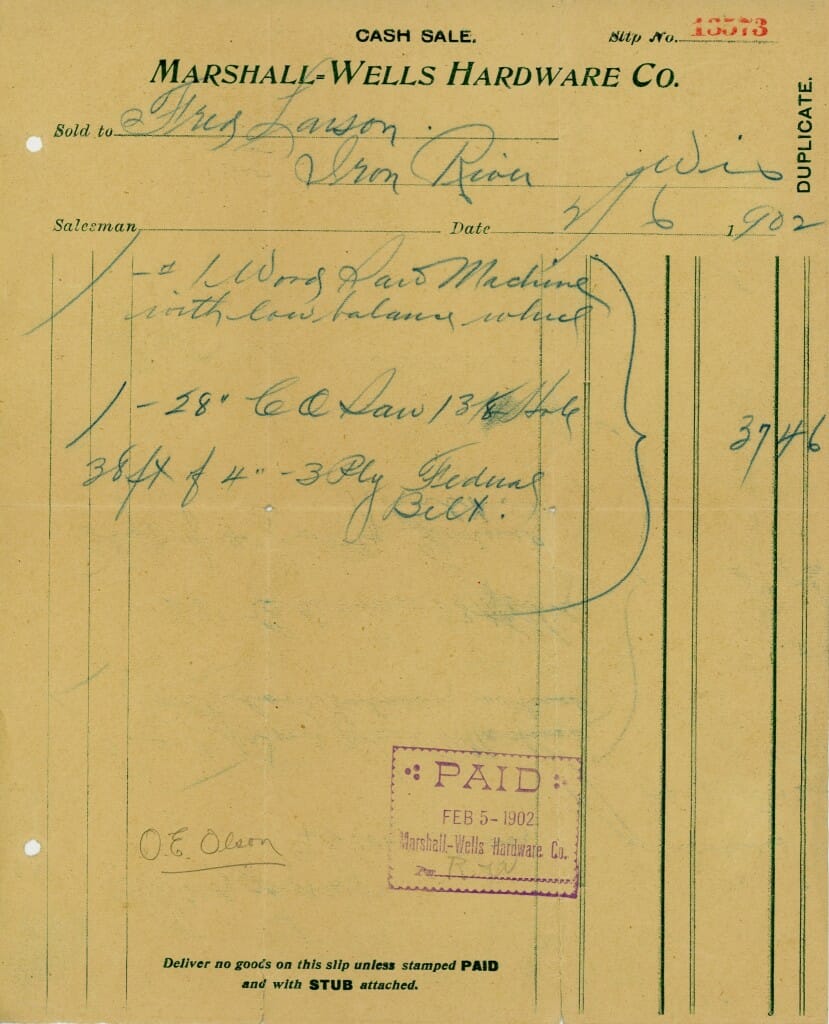 CASH SALE.
Slip No. 13573
MARSHALL-WELLS HARDWARE CO.
DUPLICATE.
Sold to Fred Larson.
Iron River Wis
Salesman Date 2/6 1902
1 - # 1 Wood Saw Machine
with low balance wheel
1 - 28" C O Saw 1 3/8 Hole
37 46
38 ft of 4" - 3 Ply Federal
Belt.
PAID
FEB 5 - 1902
Marshall-Wells Hardware Co.
Per
O.E. Olson
Deliver no goods on this slip unless stamped PAID
and with STUB attached.